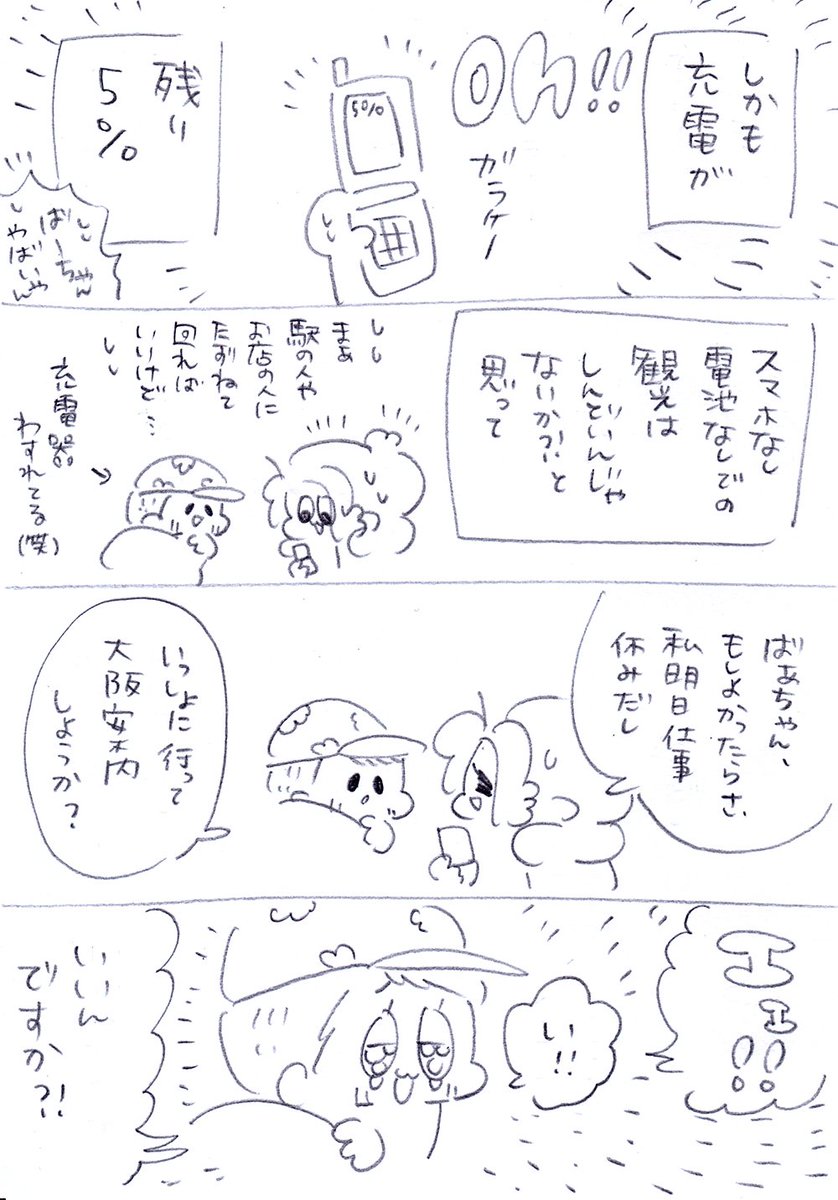 しかも
充電が
Oh!!
ガラケー
5%
残り
5%
ばーちゃん
やばいやん
スマホなし
電池なしでの
観光は
しんどいんじゃ
ないか?!と
思って
まぁ
駅の人や
お店の人に
たずねて
回れば
いいけど…
充電器
わすれてる(笑)
ばあちゃん、
もしよかったらさ、
私明日仕事
休みだし
いっしょに行って
大阪案内
しようか?
エエ!!
い!!
いいん
ですか?!